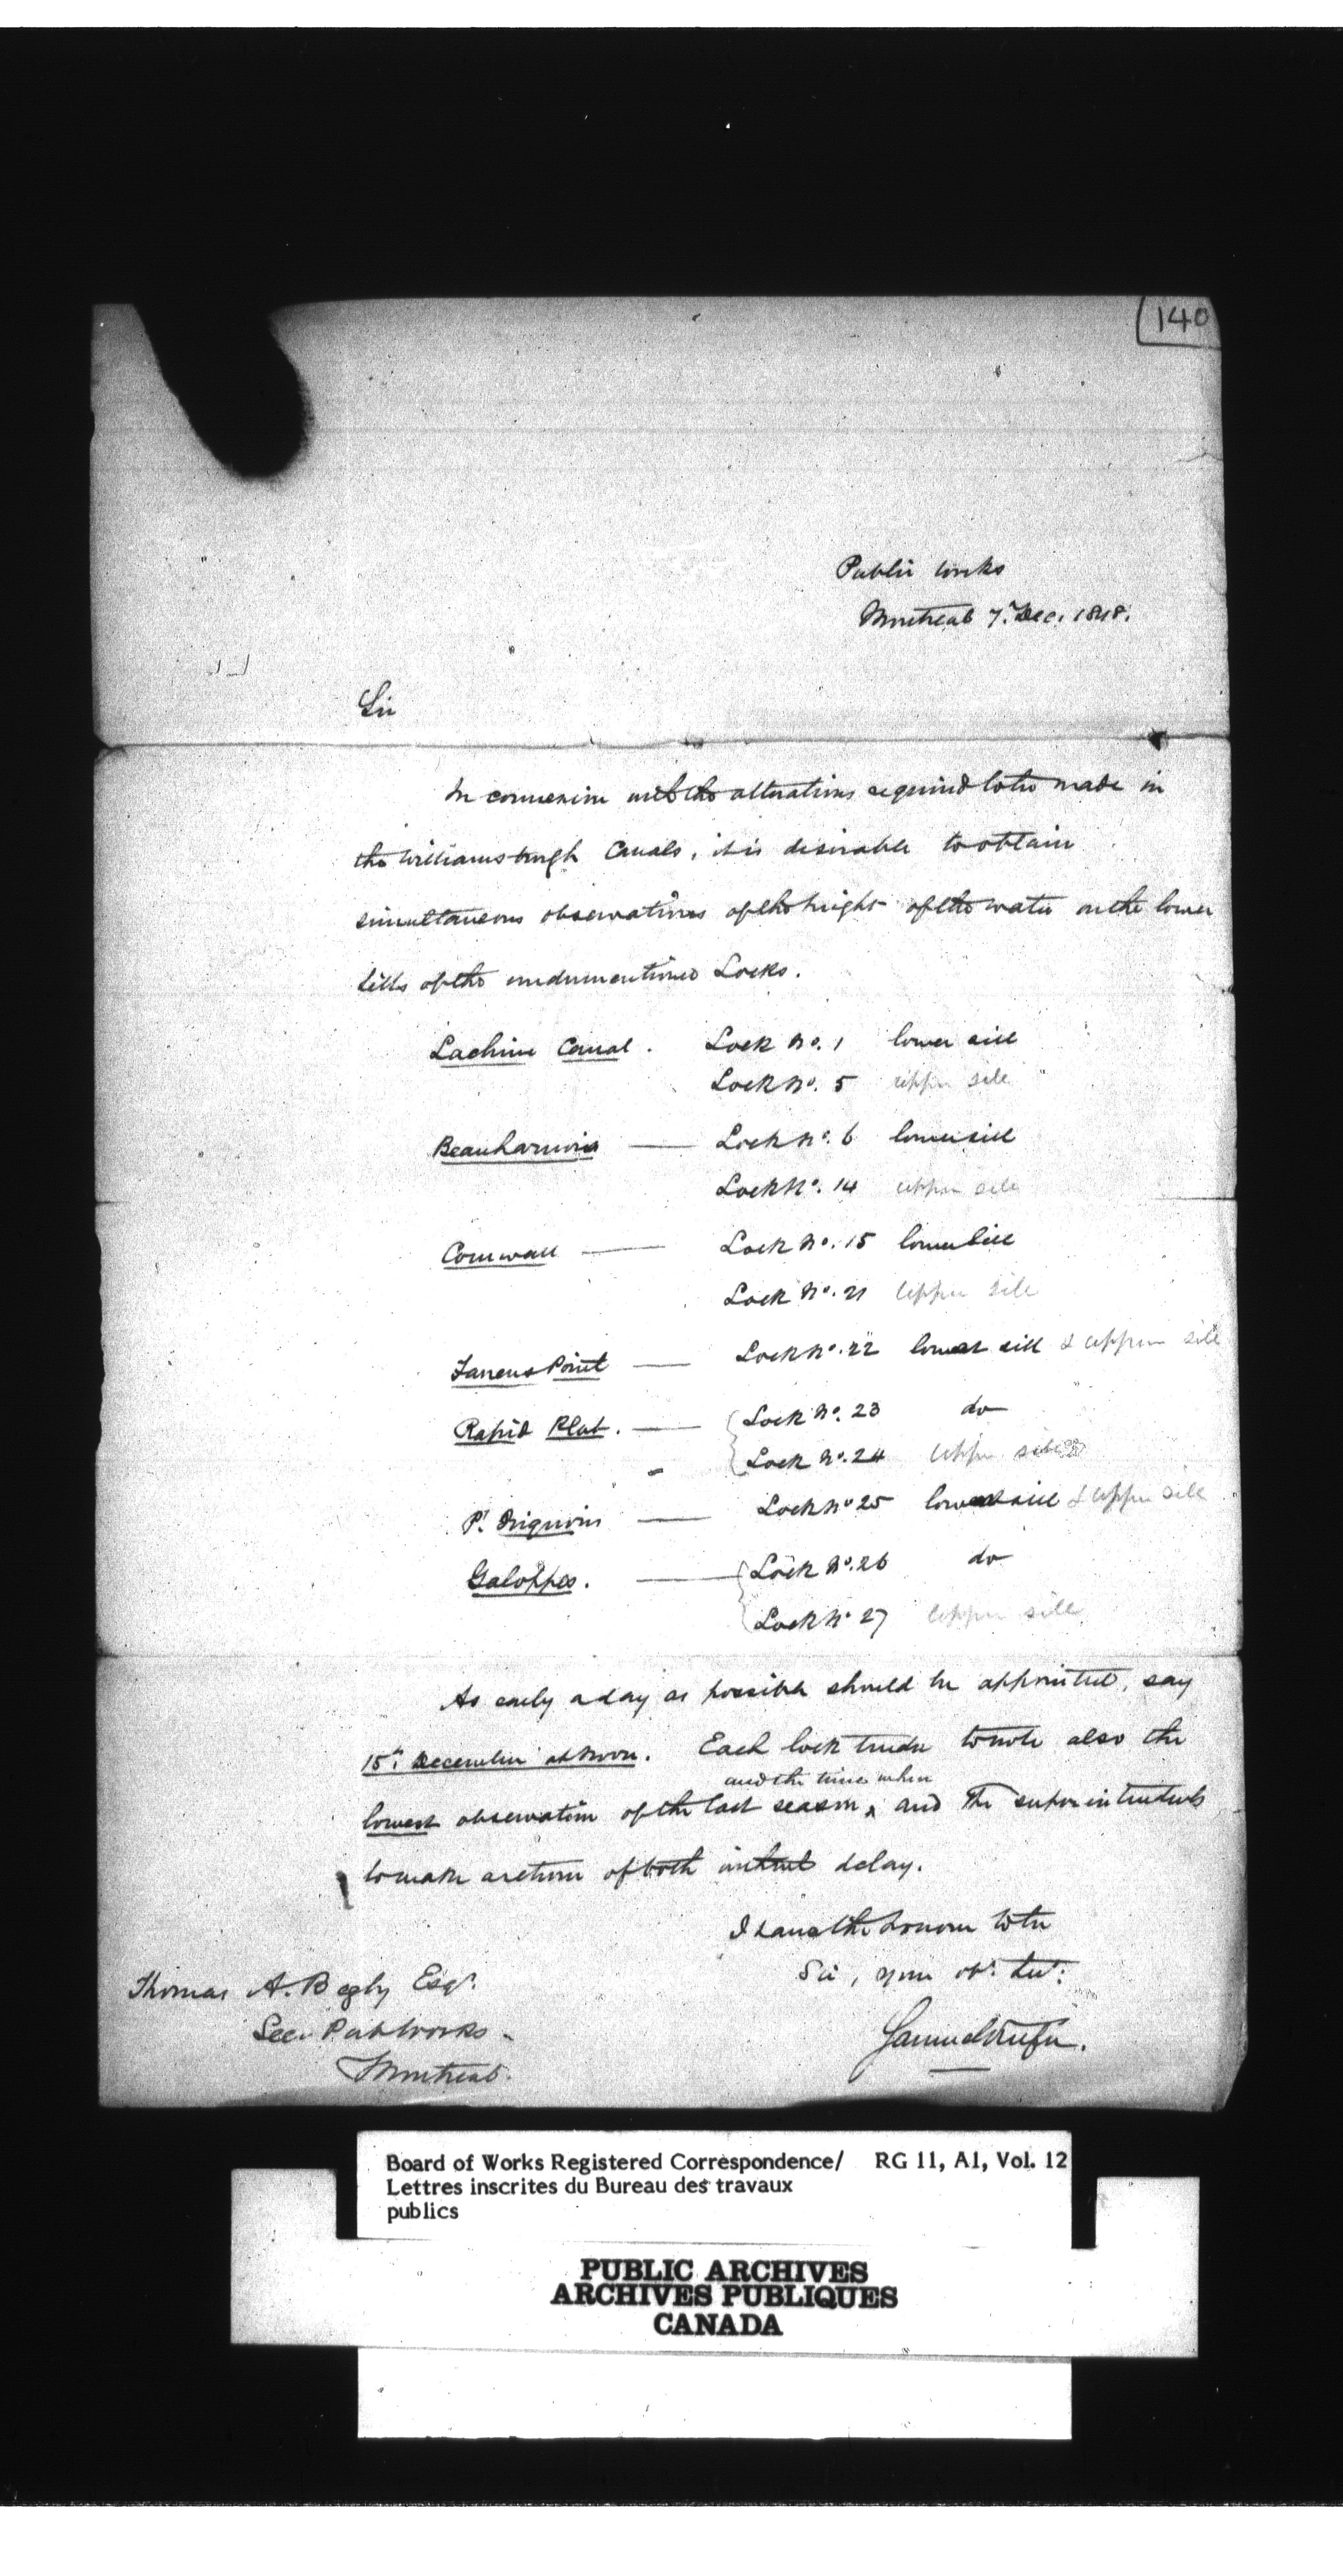 140
Public Works
Montreal 7. Dec. 1848.
Sir
In connexion with the alterations required to be made in
the Williamsburgh Canals, it is desirable to obtain
simultaneous observations of the height of the water on the lower
sills of the undermentioned Locks.
Lachine Canal. Lock No. 1 lower sill
Lock No. 5 upper sill
Beauharnois — Lock No. 6 lower sill
Lock No. 14 upper sill
Cornwall — Lock No. 15 lower sill
Lock No. 21 upper sill
Farrens Point — Lock No. 22 lower sill & upper sill
Rapid Plat. — Lock No. 23 do
Lock No. 24 upper sill
Pt. Iriquois — Lock No 25 lower sill & upper sill
Galoppes. — Lock No. 26 do
Lock No 27 upper sill
As early a day as possible should be appointed, say
15th December at noon. Each lock tender to note also the
and the time when
lowest observation of the last season, and the superintendents
to make a return of both without delay.
I have the honour to be
Sir, your obt. svt.
Thomas A. Begly Esqr.
Sec. Pub Works
Samuel Keefer.
Montreal.
Board of Works Registered Correspondence/ RG 11, A1, Vol. 12
Lettres inscrites du Bureau des travaux
publics
PUBLIC ARCHIVES
ARCHIVES PUBLIQUES
CANADA